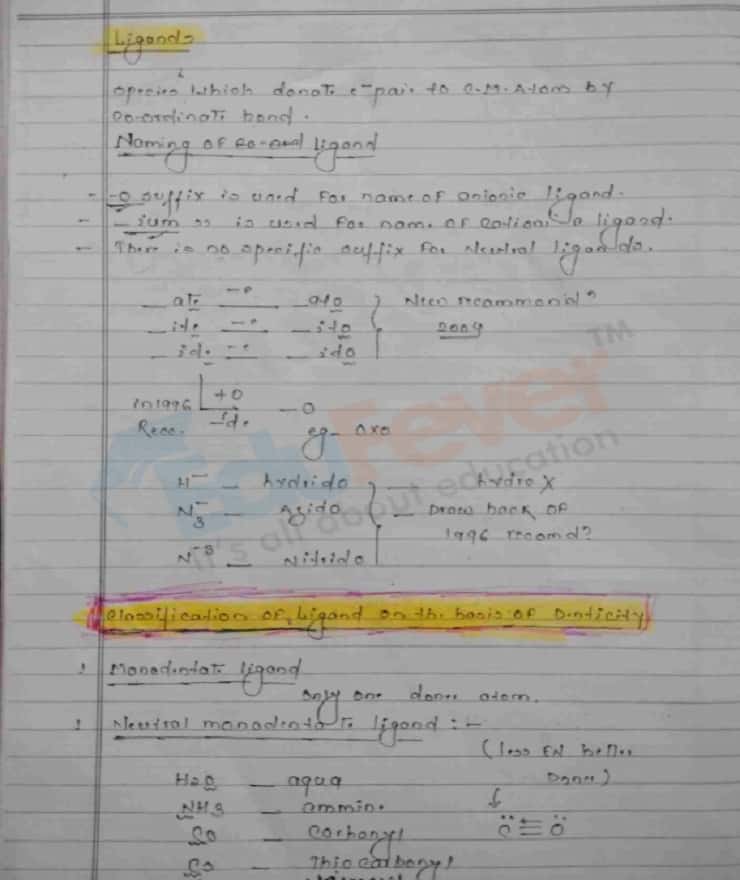 Ligand
Species which donate e⁻ pair to C.M. Atom by
co-ordinate bond.
Naming of ligand
- -o suffix is used for name of anionic ligand.
- - ium " is used for name of cationic ligand.
- There is no specific suffix for Neutral ligands.
_ ate -e _ ato New recommend?
_ ite -e _ ito 2004
_ ide -e _ ido
in 1996 +o - o
Reco. -ide eg- oxo
H⁻ - hydrido - hydro X
N₃⁻ - Azido - Draw back of
1996 recomd?
N⁻³ - Nitrido
EduFever TM
it's all about education
Classification of Ligand on the basis of Denticity
1 Monodentate ligand
only one donor atom.
1 Neutral monodentate ligand :-
(less EN better
Donor)
H₂O - aqua
NH₃ - ammine
CO - Carbonyl C ≡ O
CS - Thiocarbonyl